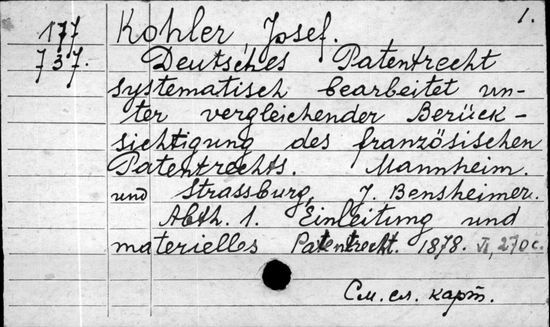 1.
177 Kohler, Josef.
737. Deutsches Patentrecht
systematisch bearbeitet un-
ter vergleichender Berück-
sichtigung des französischen
Patentrechts. Mannheim.
und Strassburg, J. Bensheimer.
Abth. 1. Einleitung und
materielles Patentrecht. 1878. VI, 270 с.
См. сл. карт.